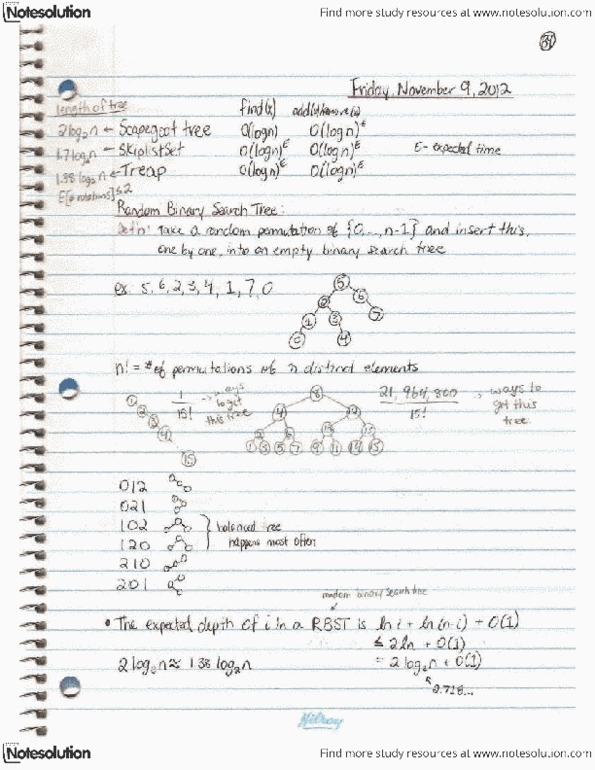 Notesolution
Find more study resources at www.notesolution.com
Friday, November 9, 2012
length of tree find(x) add(x)/remove(x)
2 log₂ n ← Scapegoat tree O(log n) O(log n)ᴱ
1.7 log₂ n ← SkiplistSet O(log n)ᴱ O(log n)ᴱ E - expected time
1.38 log₂ n ← Treap O(log n)ᴱ O(log n)ᴱ
E[# rotations] ≤ 2
Random Binary Search Tree:
Defn: Take a random permutation of {0,...,n-1} and insert this,
one by one, into an empty binary search tree
ex: 5, 6, 2, 3, 4, 1, 7, 0
5
2 6
1 3 7
0 4
n! = # of permutations of n distinct elements
1
2
3
4
15
1/15! → ways to get this tree
8
4 12
2 6 10
1 3 5 7 9 11 15
21, 964, 800 / 15! → ways to get this tree
012
021
102
120
balanced tree
happens most often
210
201
random binary search tree
• The expected depth of i in a RBST is ln i + ln(n-i) + O(1)
≤ 2 ln + O(1)
2 logₑ n ≈ 1.38 log₂ n
= 2 logₑ n + O(1)
2.718...
Hilroy
Notesolution
Find more study resources at www.notesolution.com